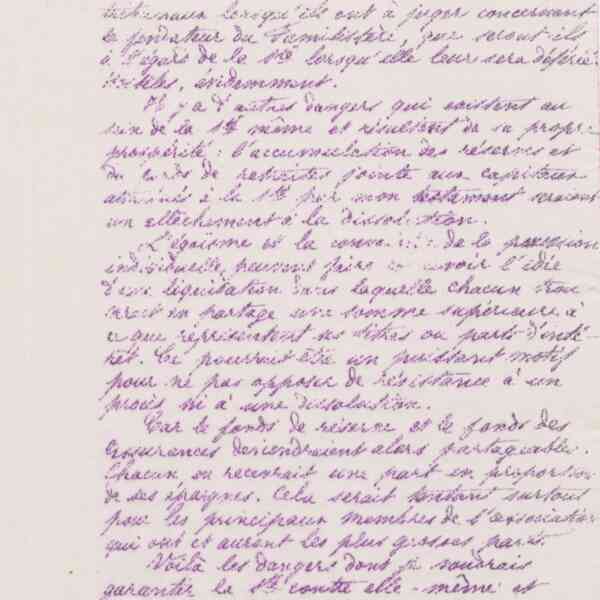 lorsqu'ils ont à juger concernant
le fondateur du Familistère, que seront ils
à l'égard de la Sté lorsqu'elle leur sera déférée
évidemment.
Il y a d'autres dangers qui existent au
sein de la Sté même et résultent de sa propre
prospérité : l'accumulation des réserves et
du fonds de retraites jointe aux capitaux
à la Sté par mon testament seraient
un allèchement à la dissolution.
L'égoïsme et la de la possession
individuelle peuvent faire l'idée
d'une liquidation dans laquelle chacun
en partage une somme supérieure à
ce que représentent ses titres ou parts d'inté-
rêt. Ce pourrait être un puissant motif
pour ne pas opposer de résistance à un
procès ni à une dissolution.
Car le fonds de réserve et le fonds des
assurances deviendraient alors partageables.
Chacun en recevrait une part en proportion
de ses épargnes. Cela serait tentant surtout
pour les principaux membres de l'association
qui ont et auront les plus grosses parts.
Voilà les dangers dont je voudrais
garantir la Sté contre elle-même et